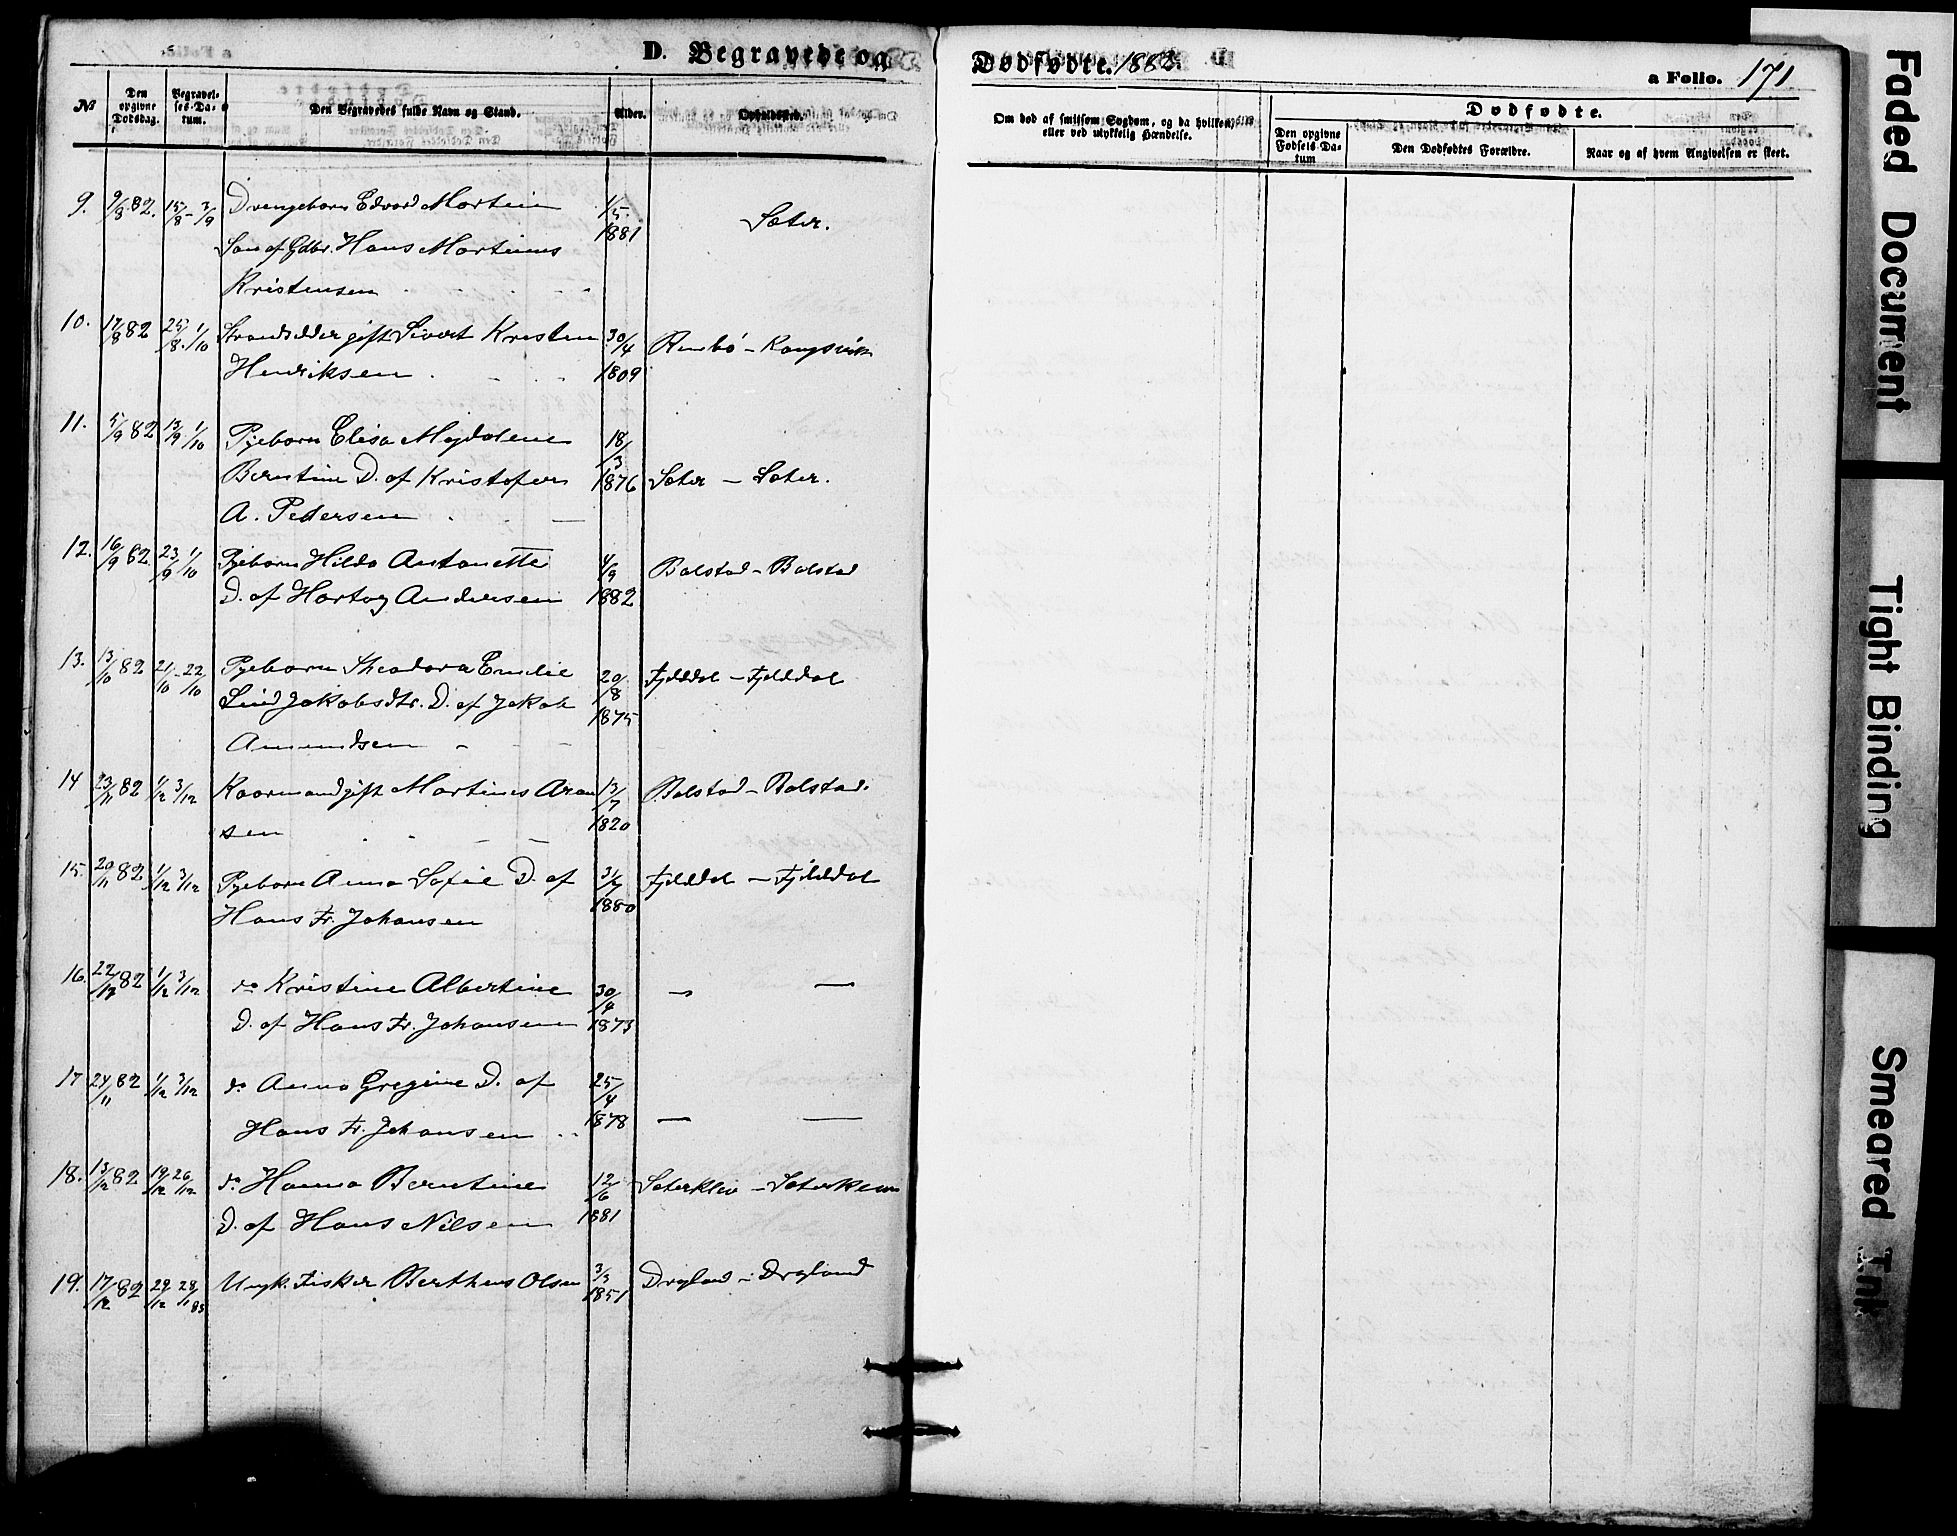 D. Begravede og
Dødfødte. 1882.
a Folio. 171.
№
Den opgivne Dødsdag.
Begravelses-Datum.
Den Begravedes fulde Navn og Stand.
Alder.
Opholdssted.
Om død af smitsom Sygdom, og da hvilken, eller ved ulykkelig Hændelse.
Dødfødte.
Den opgivne Fødsels-Datum
Den Dødfødtes Forældre.
Naar og af hvem Angivelsen er skeet.
9. 9/8 82. 15/8 - 3/9 Drengebarn Edvard Martin 1/5 1881 Sæter.
Søn af Gdbr. Hans Martinus
Kristensen
10. 17/8 82 25/8 1/10 Strandsidder gift Sivert Kristen 30/4 1809
Henriksen
11. 5/9 82 13/9 1/10 Pigebarn Elisa Magdalene 18/3 1876
Berntine D. af Kristofer Sæter - Sæter.
A. Pedersen
12. 16/9 82. 23/9 1/10 Pigebarn Hilda Antonette 4/9 1882 Bolstad - Bolstad
D. af Hartog Andersen
13. 13/10 82 21/10 - 22/10 Pigebarn Theodora Emilie 20/8 1875 Fjelddal - Fjelddal
Lind Jakobsdtr. D. af Jakob
Amundsen
14 23/11 82 1/12 3/12 Kaarmand gift Martines Aron 13/7 1820 Bolstad - Bolstad.
sen
15. 20/11 82 1/12 3/12 Pigebarn Anna Sofie D. af 3/7 1880 Fjelddal - Fjelddal
Hans Fr. Johansen
16. 22/11 82 1/12 3/12 do Kristine Albertine 30/4 1873 — —
D. af Hans Fr. Johansen
17 24/11 82 1/12 3/12 do Anna Gregine D. af 25/4 1878 — —
Hans Fr. Johansen
18. 13/12 82 19/12 26/12 do Hanna Berntine 12/6 1881 Sæterklev -
D. af Hans Nilsen
19. 17/12 82 29/12 Ungk. Fisker Bertheus Olsen 3/3 1851 Drogland - Drogland
Faded Document
Tight Binding
Smeared Ink